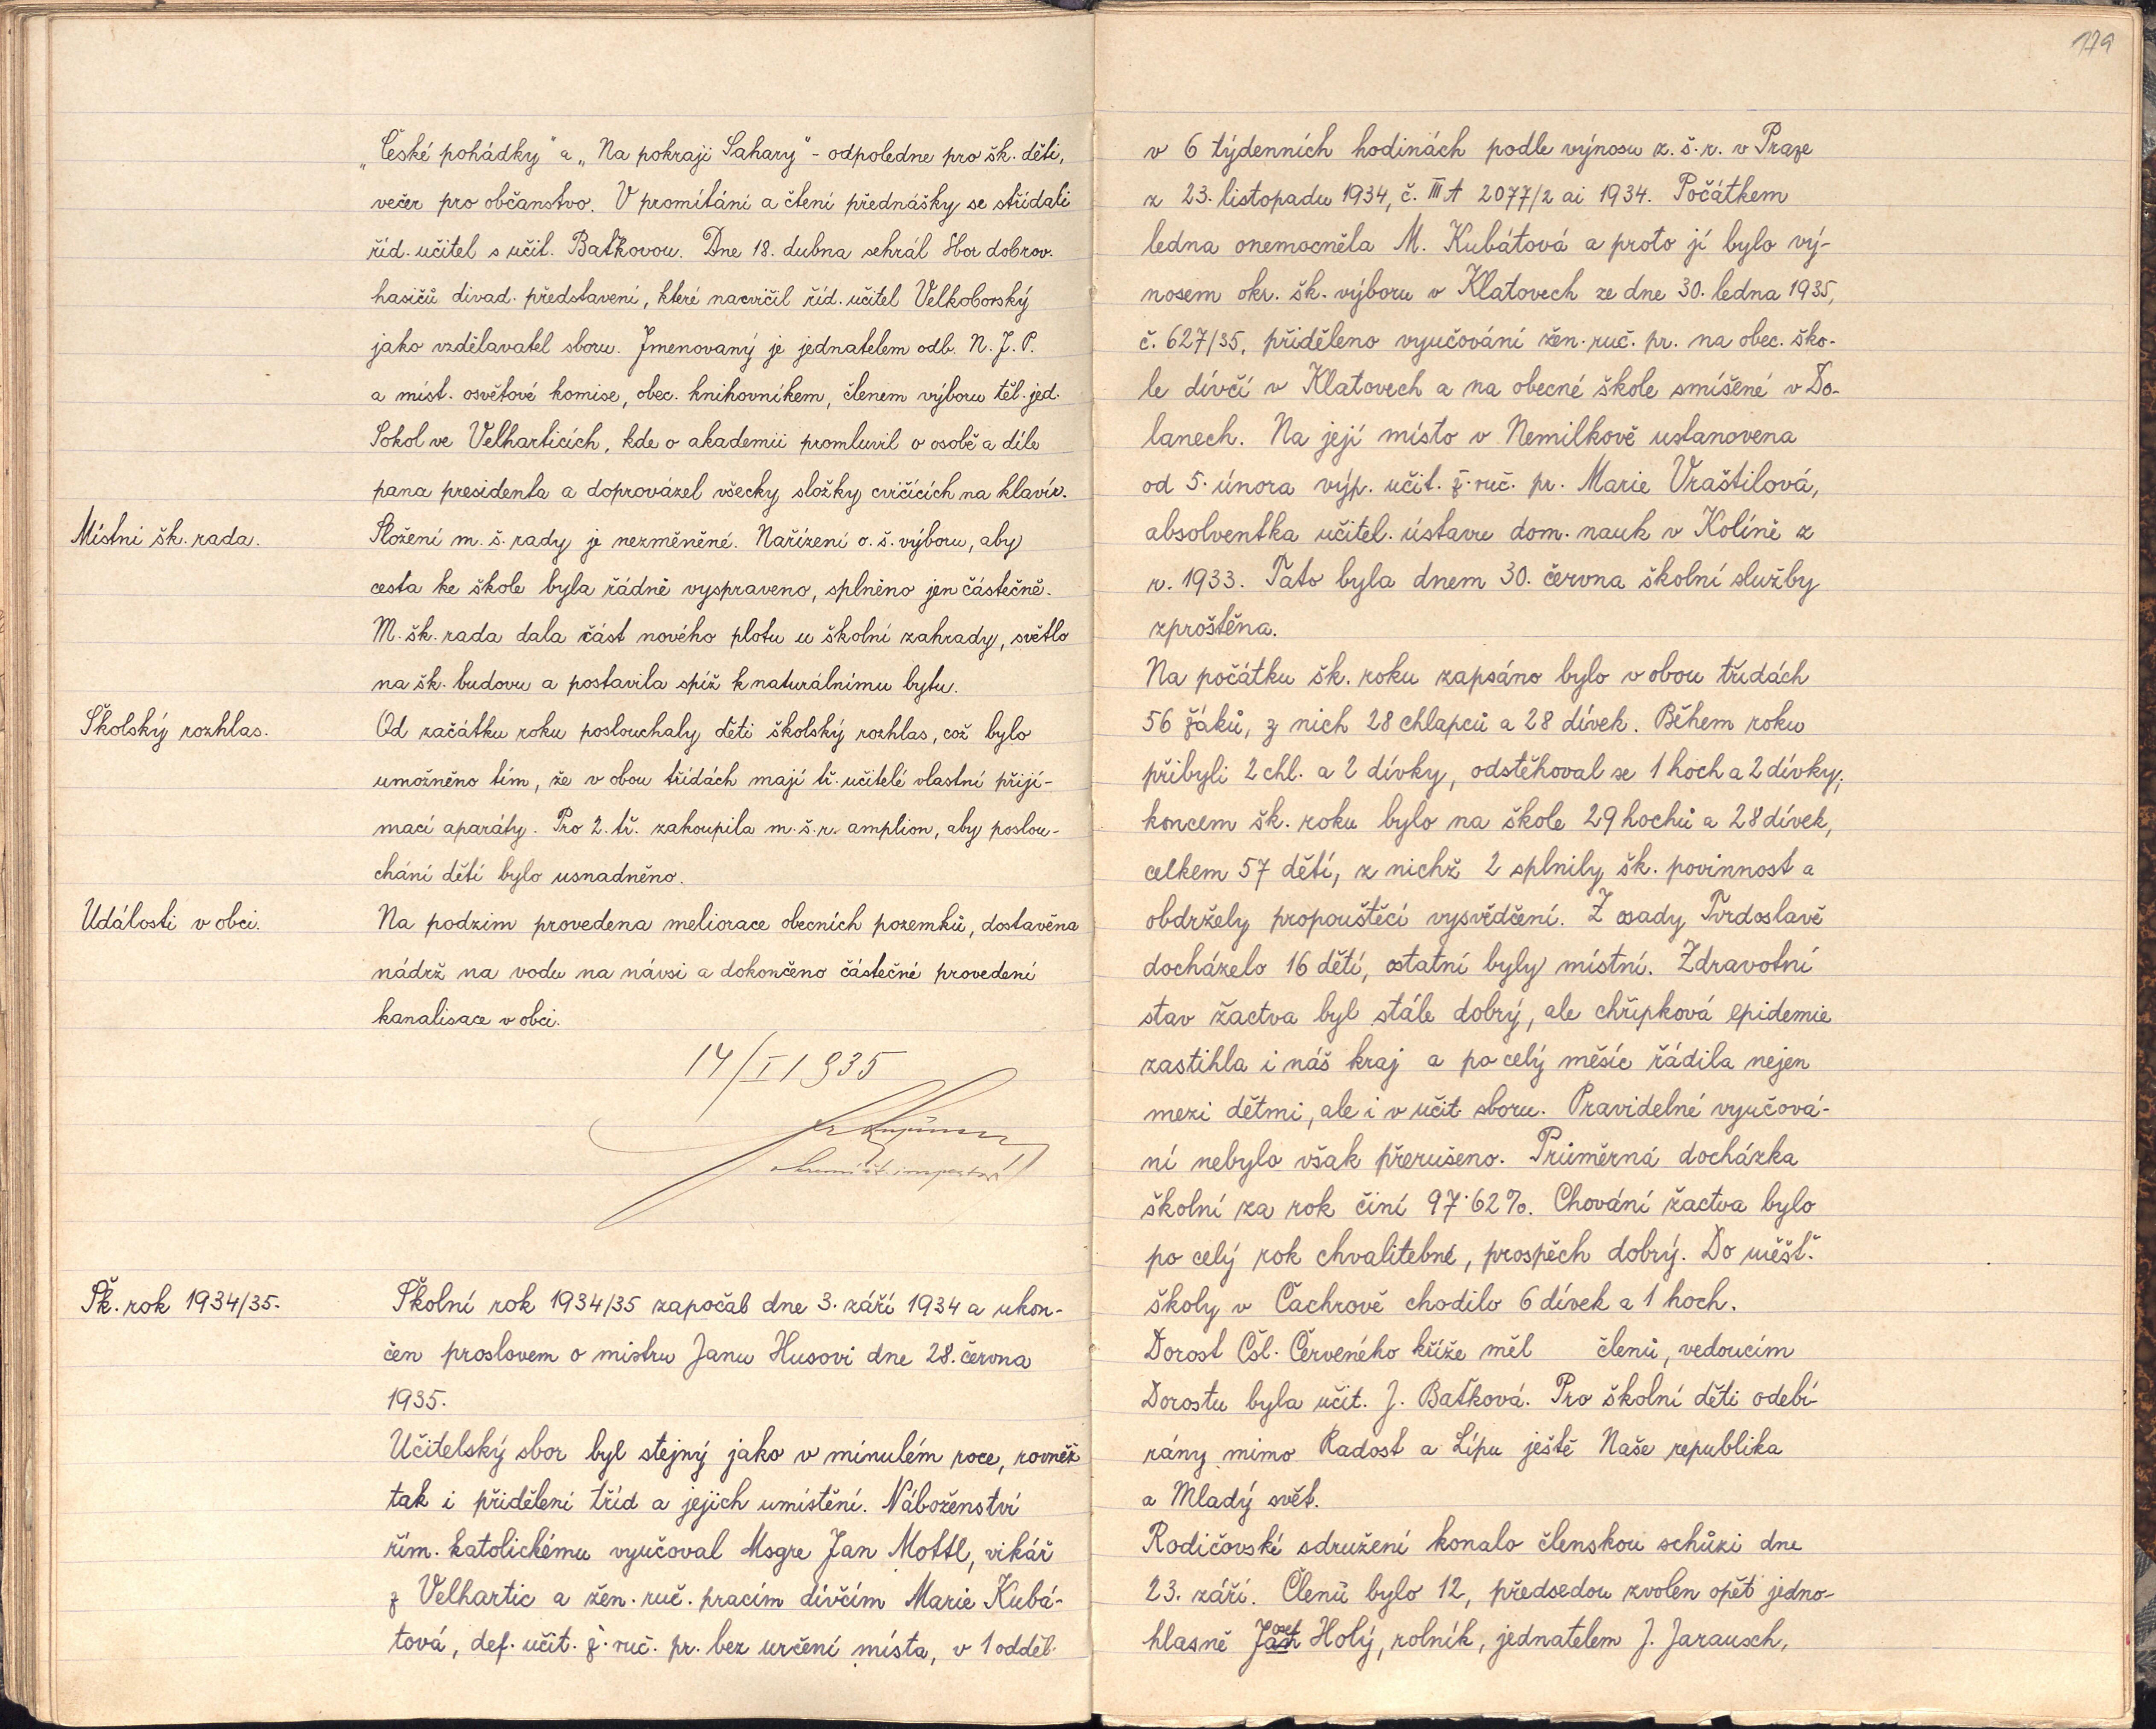 „České pohádky" a „Na pokraji Sahary" - odpoledne pro šk. děti,
večer pro občanstvo. V promítání a čtení přednášky se střídali
říd. učitel s učit. Baťkovou. Dne 18. dubna sehrál Sbor dobrov.
hasičů divad. představení, které nacvičil říd. učitel Velkoborský
jako vzdělavatel sboru. Jmenovaný je jednatelem odb. N. J. P.
a míst. osvětové komise, obec. knihovníkem, členem výboru těl. jed.
Sokol ve Velharticích, kde o akademii promluvil o osobě a díle
pana presidenta a doprovázel všecky složky cvičících na klavír.
Místní šk. rada.
Složení m. š. rady je nezměněné. Nařízení o. š. výboru, aby
cesta ke škole byla řádně vyspraveno, splněno jen částečně.
M. šk. rada dala část nového plotu u školní zahrady, světlo
na šk. budovu a postavila spíž k naturálnímu bytu.
Školský rozhlas.
Od začátku roku poslouchaly děti školský rozhlas, což bylo
umožněno tím, že v obou třídách mají tř. učitelé vlastní přijí-
mací aparáty. Pro 2. tř. zakoupila m. š. r. amplion, aby poslou-
chání dětí bylo usnadněno.
Události v obci.
Na podzim provedena meliorace obecních pozemků, dostavěna
nádrž na vodu na návsi a dokončeno částečné provedení
kanalisace v obci.
14/I 1935
Šk. rok 1934/35.
Školní rok 1934/35 započal dne 3. září 1934 a ukon-
čen proslovem o mistru Janu Husovi dne 28. června
1935.
Učitelský sbor byl stejný jako v minulém roce, rovněž
tak i přidělení tříd a jejich umístění. Náboženství
řím. katolickému vyučoval Msgre Jan Mottl, vikář
z Velhartic a žen. ruč. pracím dívčím Marie Kubá-
tová, def. učit. ž. ruč. pr. bez určení místa, v 1 odděl.
179
v 6 týdenních hodinách podle výnosu z. š. r. v Praze
z 23. listopadu 1934, č. III A 2077/2 ai 1934. Počátkem
ledna onemocněla M. Kubátová a proto jí bylo vý-
nosem okr. šk. výboru v Klatovech ze dne 30. ledna 1935,
č. 627/35, přiděleno vyučování žen. ruč. pr. na obec. ško-
le dívčí v Klatovech a na obecné škole smíšené v Do-
lanech. Na její místo v Nemilkově ustanovena
od 5. února výp. učit. ž. ruč. pr. Marie Vraštilová,
absolventka učitel. ústavu dom. nauk v Kolíně z
r. 1933. Tato byla dnem 30. června školní služby
zproštěna.
Na počátku šk. roku zapsáno bylo v obou třídách
56 žáků, z nich 28 chlapců a 28 dívek. Během roku
přibyli 2 chl. a 2 dívky, odstěhoval se 1 hoch a 2 dívky;
koncem šk. roku bylo na škole 29 hochů a 28 dívek,
celkem 57 dětí, z nichž 2 splnily šk. povinnost a
obdržely propouštěcí vysvědčení. Z osady Tvrdoslavě
docházelo 16 dětí, ostatní byly místní. Zdravotní
stav žactva byl stále dobrý, ale chřipková epidemie
zastihla i náš kraj a po celý měsíc řádila nejen
mezi dětmi, ale i v učit. sboru. Pravidelné vyučová-
ní nebylo však přerušeno. Průměrná docházka
školní za rok činí 97·62%. Chování žactva bylo
po celý rok chvalitebné, prospěch dobrý. Do měšť.
školy v Čachrově chodilo 6 dívek a 1 hoch.
Dorost Čsl. Červeného kříže měl členů, vedoucím
Dorostu byla učit. J. Baťková. Pro školní děti odebí-
rány mimo Radost a Lípu ještě Naše republika
a Mladý svět.
Rodičovské sdružení konalo členskou schůzi dne
23. září. Členů bylo 12, předsedou zvolen opět jedno-
hlasně Josef Holý, rolník, jednatelem J. Jarausch,